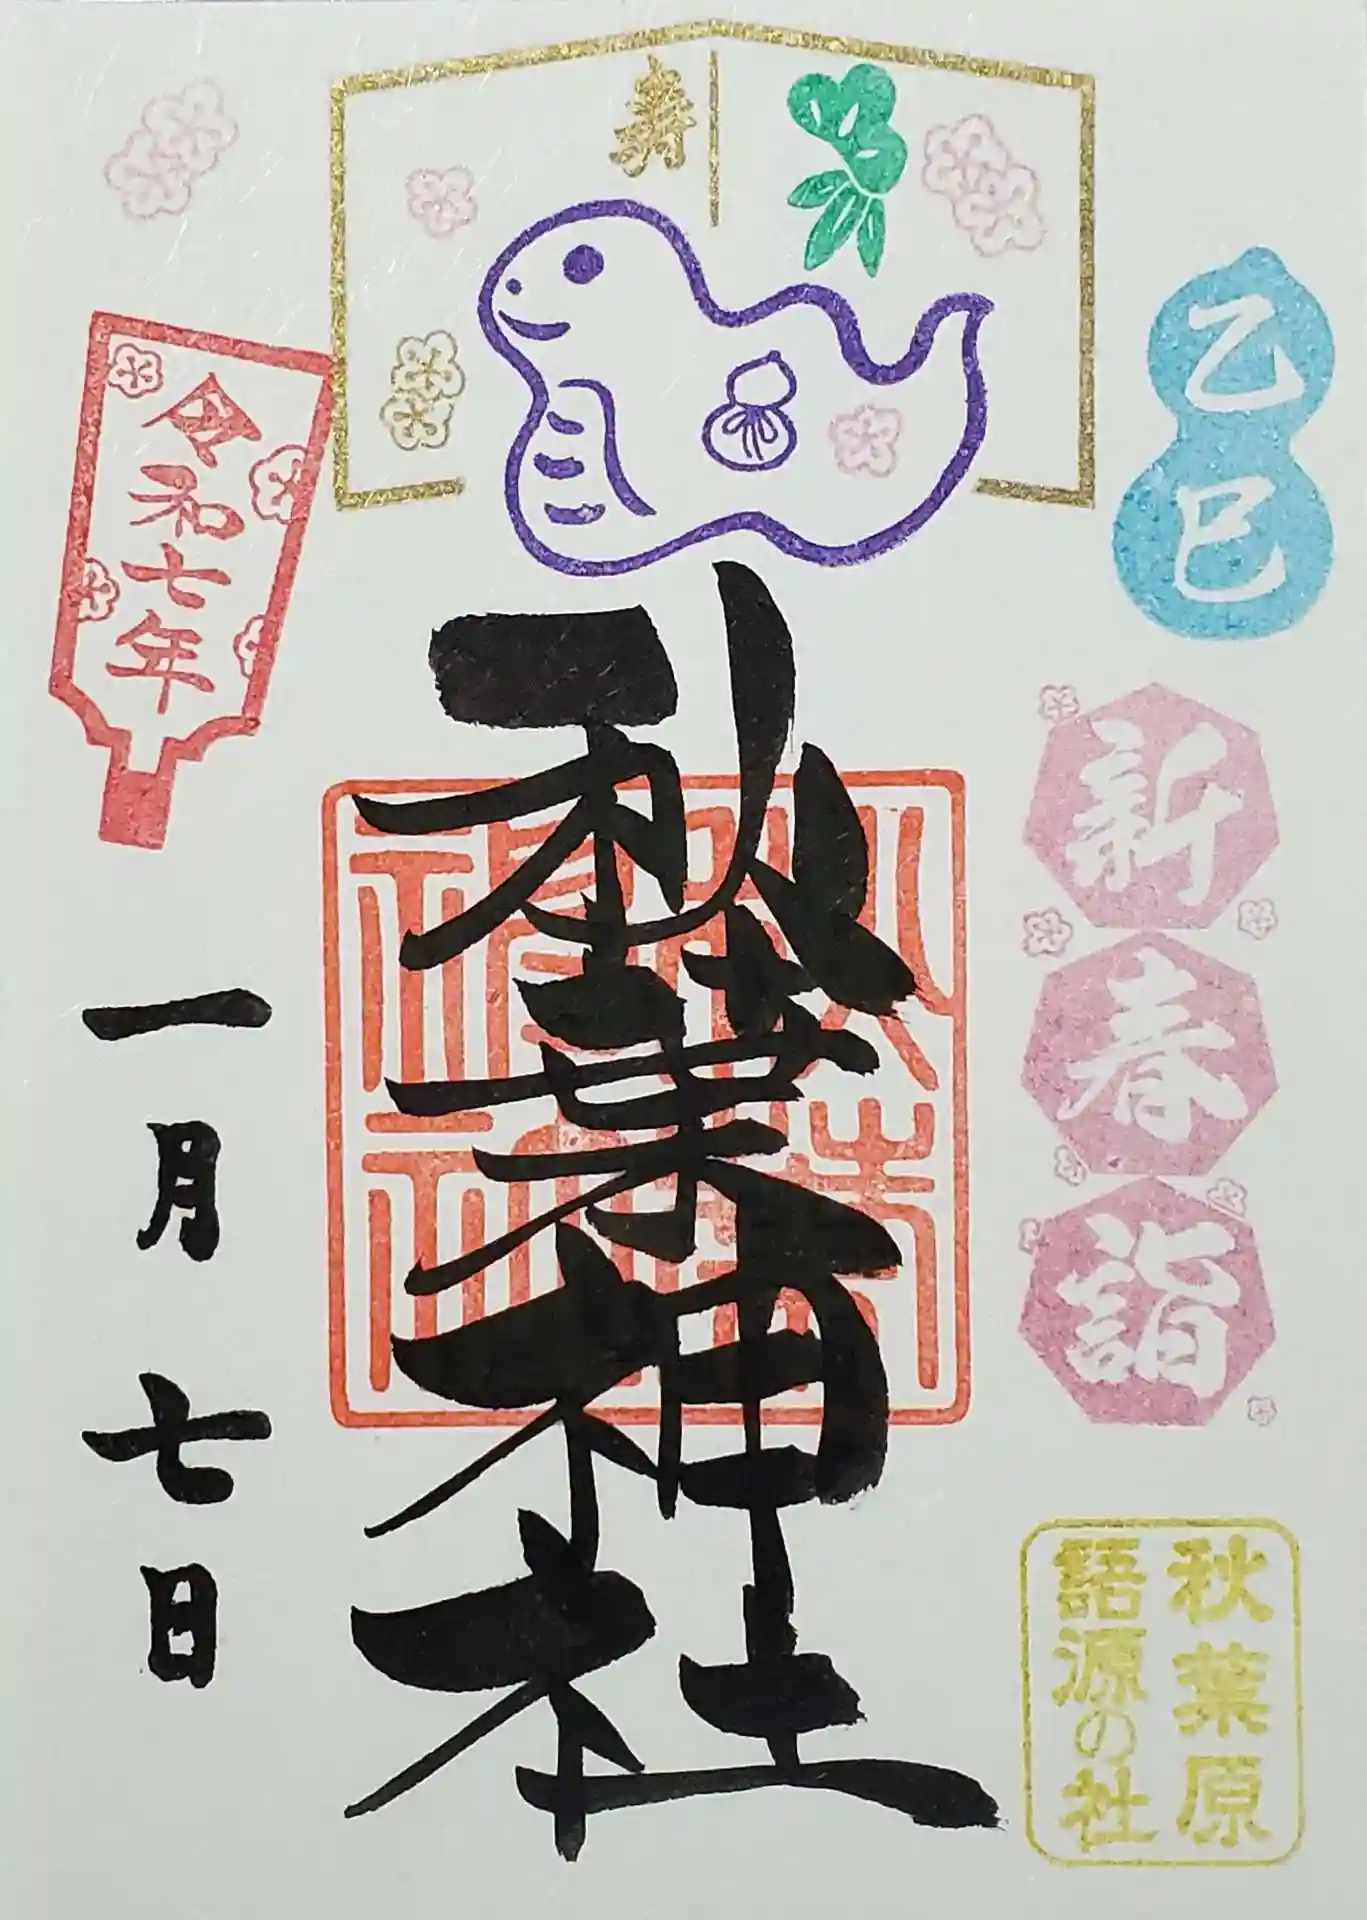 寿
乙巳
新春詣
秋葉原
語源の社
秋葉神社
令和七年
一月七日